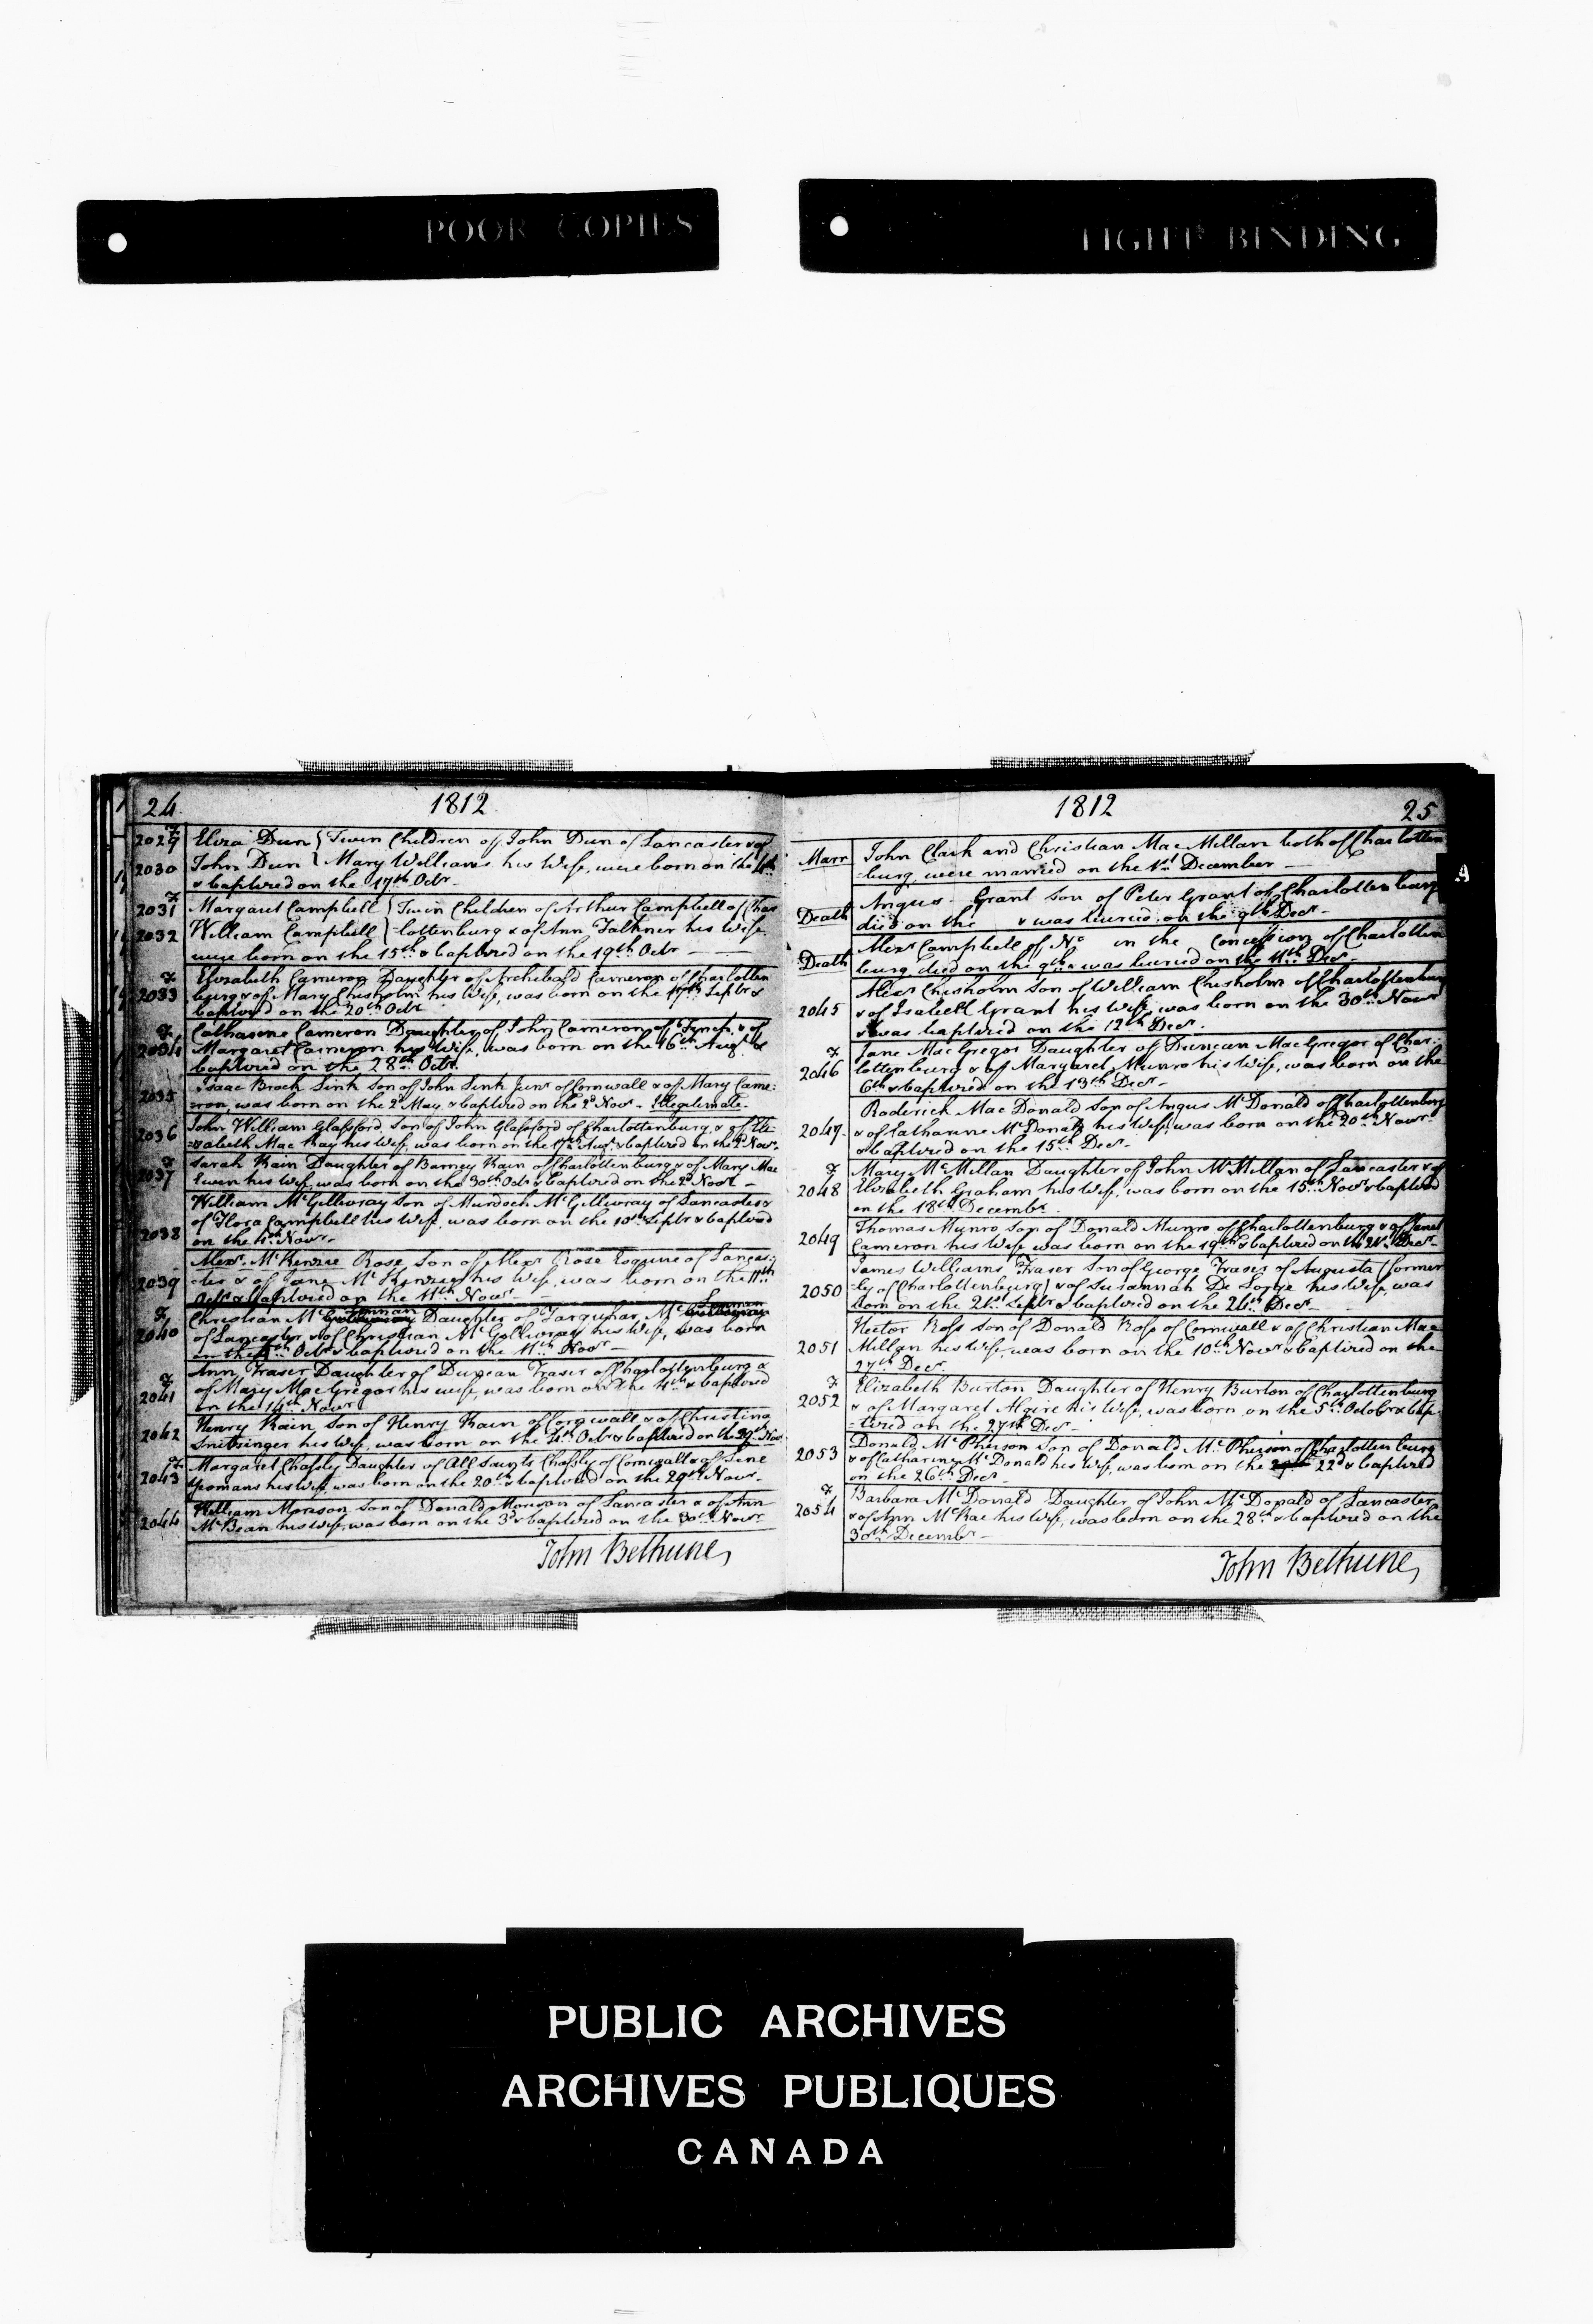 POOR COPIES
TIGHT BINDING
24 1812
2029 Eliza Dun } Twin Children of John Dun of Lancaster & of
2030 John Dun } Mary Williams his Wife, were born on the 4th
& baptized on the 17th Octr
2031 Margaret Campbell } Twin Children of Arthur Campbell of Char
2032 William Campbell } =lottenburg & of Ann Falkner his Wife
were born on the 15th & baptized on the 19th Octr
Elizabeth Cameron Daughter of Archibald Cameron of Charlotten
2033 burg & of Mary Chisholm his Wife, was born on the 17th Septbr &
baptized on the 20th Octr
Catharine Cameron Daughter of John Cameron of Finch & of
2034 Margaret Cameron his Wife, was born on the 16th Augt &
baptized on the 28th Octr.
Isaac Brock Sink Son of John Sink Junr of Cornwall & of Mary Came=
2035 =ron, was born on the 2d May & baptized on the 2d Novr - Illegitimate.
John William Glassford, Son of John Glassford of Charlottenburg, & of Eli=
2036 =zabeth Mac Kay his Wife, was born on the 17th Augt & baptized on the 2d Novr.
Sarah Kain Daughter of Barney Kain of Charlottenburg & of Mary Mac
2037 Ewen his Wife, was born on the 30th Octr & baptized on the 2d Novr -
William McGillivray Son of Murdoch McGillivray of Lancaster &
of Flora Campbell his Wife, was born on the 10th Septr & baptized
2038 on the 4th Novr.
Alexr. McKenzie Rose, Son of Alexr Rose Esquire of Lancas=
2039 ter & of Jane McKenzie his Wife, was born on the 11th
Octr & baptized on the 11th Novr -
Christian Mc Lennan Daughter of Farquhar Mc Lennan
2040 of Lancaster, & of Christian McGillivray his Wife, was born
on the Octr & baptized on the 11th Novr -
Ann Fraser Daughter of Duncan Fraser of Charlottenburg &
2041 of Mary MacGregor his wife, was born on the 4th & baptized
on the 14th Novr
Henry Kain Son of Henry Kain of Cornwall & of Christina
2042 Snitzinger his Wife, was born on the 4th Octr & baptized on the 29th Novr
Margaret Chassly Daughter of All Saints Chassly of Cornwall & of Jene
2043 Yeomans his Wife, was born on the 20th & baptized on the 29th Novr -
William Morison Son of Donald Morison of Lancaster & of Ann
2044 McBean his Wife, was born on the 3d & baptized on the 30th Novr
John Bethune
1812 25
Marr John Clark and Christian Mac Millan both of Charlotten
=burg, were married on the 1st December -
Angus Grant Son of Peter Grant of Charlottenburg
Death died on the & was buried on the 9th Decr -
Alexr Campbell of No in the Concession of Charlotten
Death burg died on the 9th & was buried on the 11th Decr -
Alexr Chisholm Son of William Chisholm of Charlottenburg
2045 & of Isabell Grant his Wife was born on the 30th Novr
& was baptized on the 12th Decr.
Jane MacGregor Daughter of Duncan MacGregor of Char=
2046 lottenburg & of Margaret Munro his Wife, was born on the
6th & baptized on the 13th Decr -
Roderick Mac Donald Son of Angus McDonald of Charlottenburg
2047 & of Catharine McDonald his Wife, was born on the 20th Novr
& baptized on the 15th Decr -
Mary McMillan Daughter of John McMillan of Lancaster & of
2048 Elizabeth Graham his Wife, was born on the 15th Novr & baptized
on the 18th Decembr.
2049 Thomas Munro Son of Donald Munro of Charlottenburg & of Janet
Cameron his Wife was born on the 19th & baptized on the 21st Decr -
James Williams Fraser Son of George Fraser of Augusta (former
2050 =ly of Charlottenburg) & of Susannah De Forge his Wife, was
born on the 21st Septr & baptized on the 24th Decr -
Hector Ross Son of Donald Ross of Cornwall & of Christian Mac
2051 Millan his Wife, was born on the 10th Novr & baptized on the
27th Decr
Elizabeth Burton Daughter of Henry Burton of Charlottenburg
2052 & of Margaret Algire his Wife, was born on the 5th Octobr & bap
=tized on the 27th Decr -
2053 Donald McPherson Son of Donald McPherson of Charlottenburg
& of Catharine McDonald his Wife, was born on the 22d & baptized
on the 26th Decr -
Barbara McDonald Daughter of John McDonald of Lancaster
2054 & of Ann McRae his Wife, was born on the 28th & baptized on the
30th Decembr -
John Bethune
PUBLIC ARCHIVES
ARCHIVES PUBLIQUES
CANADA